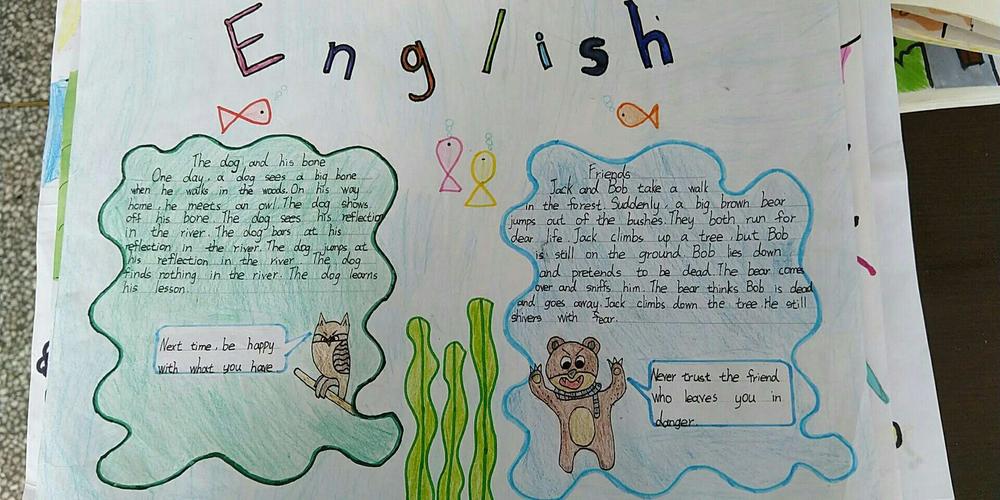 English
The dog and his bone
One day, a dog sees a big bone
when he walks in the woods. On his way
home, he meets an owl. The dog shows
off his bone. The dog sees his reflection
in the river. The dog bars at his
reflection in the river. The dog jumps at
his reflection in the river. The dog
finds nothing in the river. The dog learns
his lesson.
Next time, be happy
with what you have
Friends
Jack and Bob take a walk
in the forest. Suddenly, a big brown bear
jumps out of the bushes. They both run for
dear life. Jack climbs up a tree, but Bob
is still on the ground. Bob lies down
and pretends to be dead. The bear comes
over and sniffs him. The bear thinks Bob is dead
and goes away. Jack climbs down the tree. He still
shivers with fear.
Never trust the friend
who leaves you in
danger.